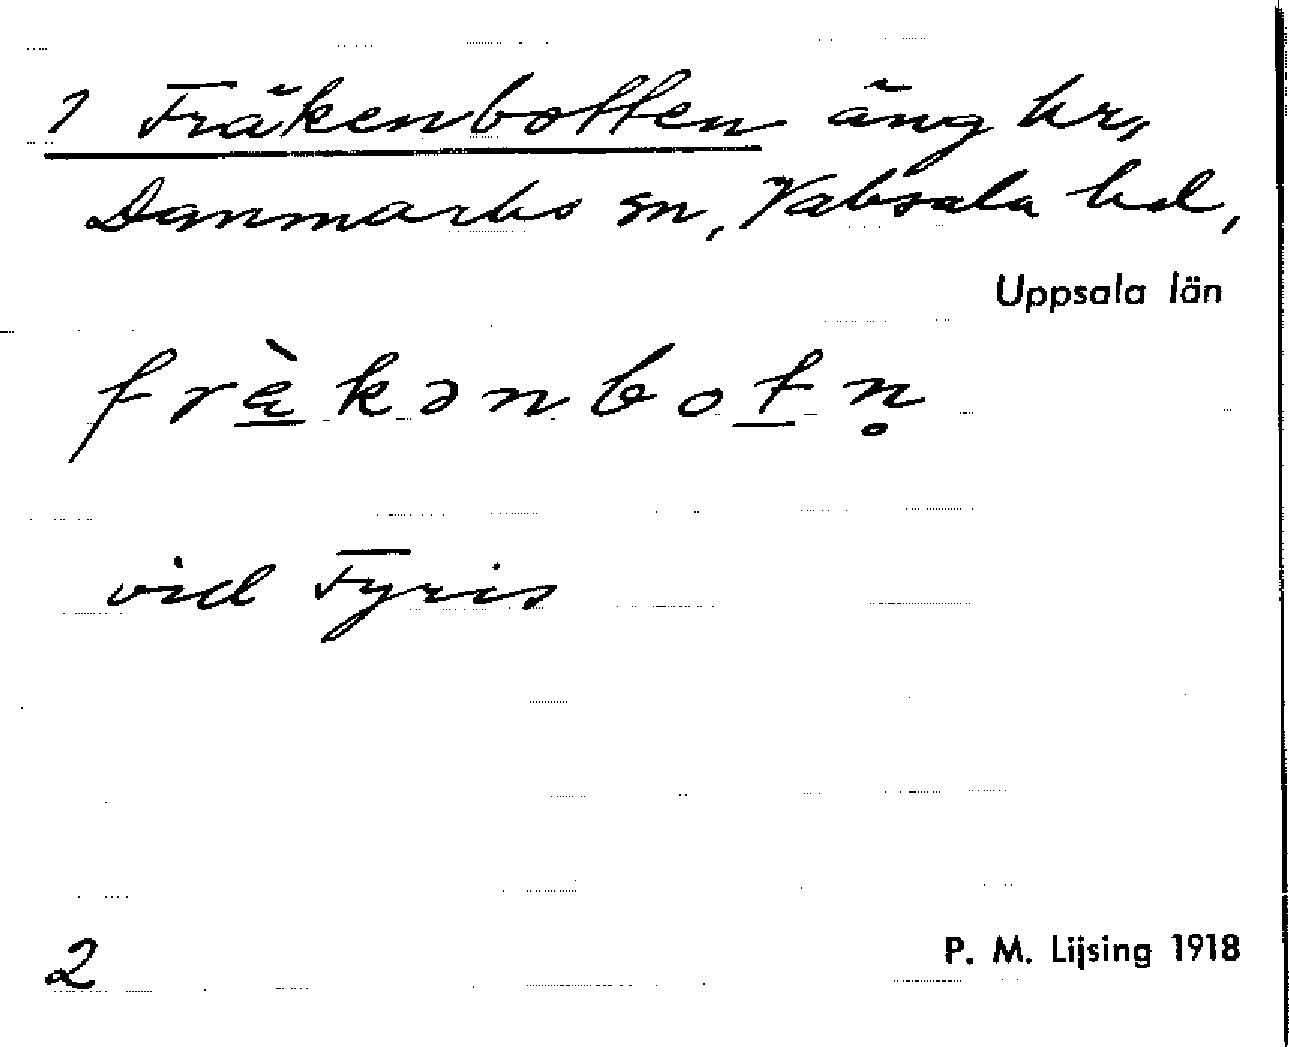 1 Fräkenbotten äng hr,
Danmarks sn, Vaksala hd,
Uppsala län
frä̀kənbotn̥
vid Fyris
2
P. M. Lijsing 1918